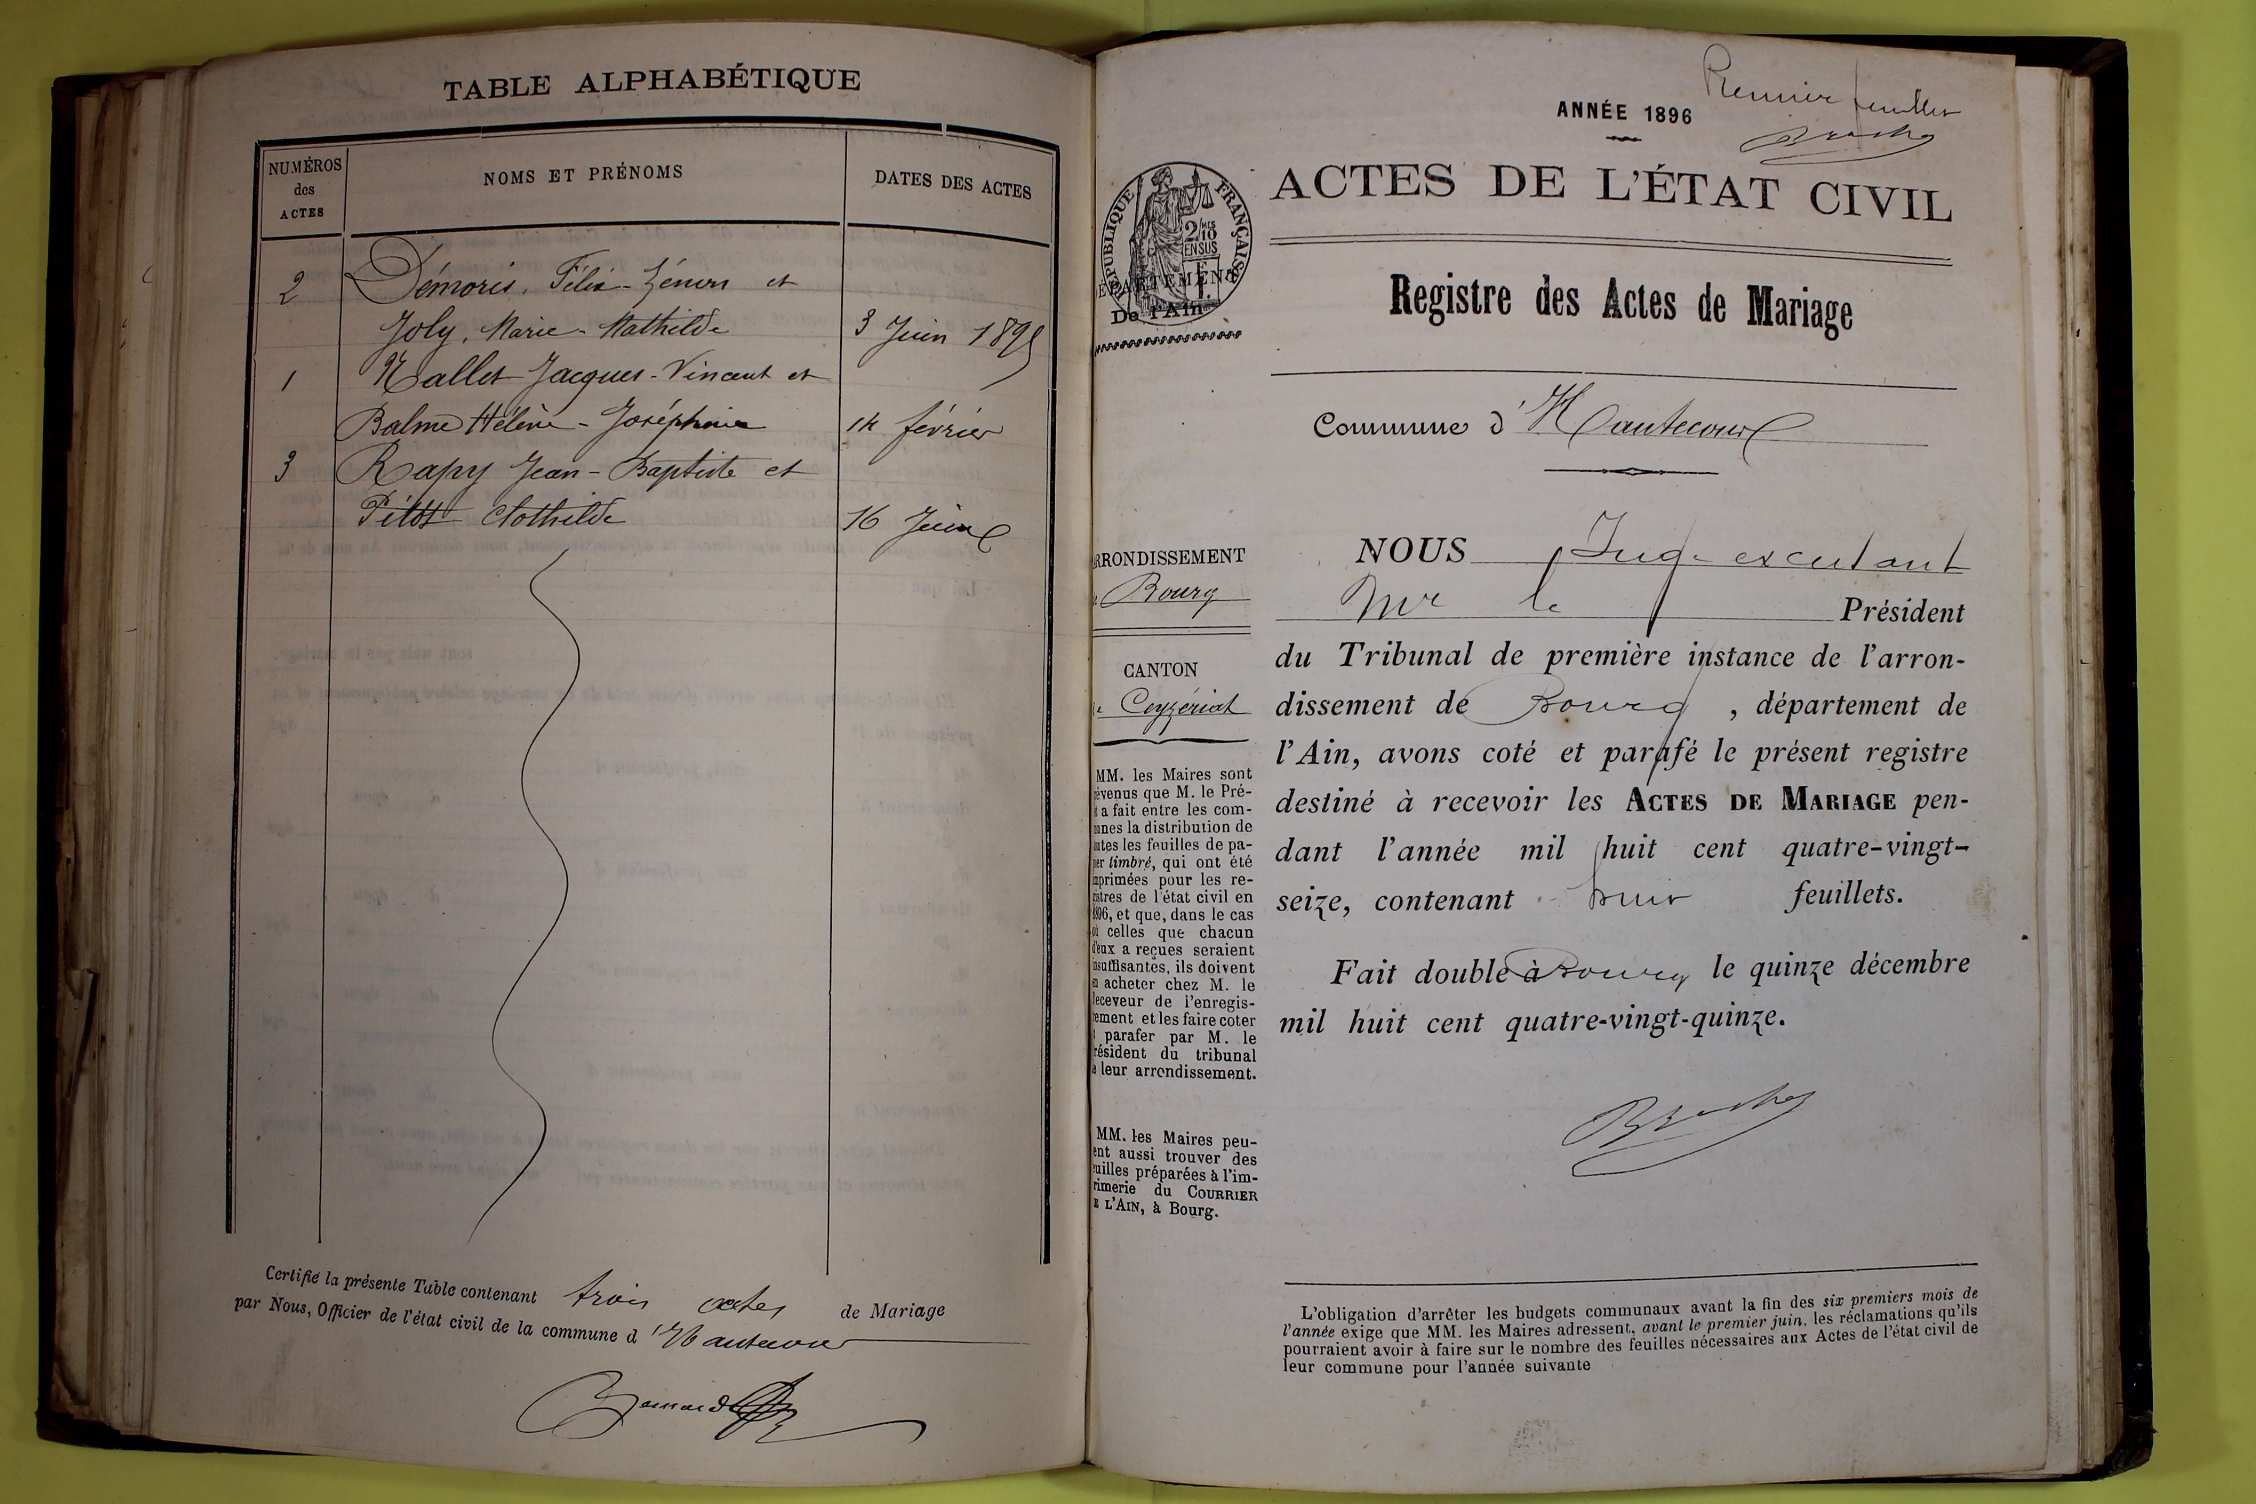 TABLE ALPHABÉTIQUE
NUMÉROS
des
ACTES
NOMS ET PRÉNOMS
DATES DES ACTES
2 Démoris, Félix-Zénon et
Joly, Marie-Mathilde 3 Juin 1895
1 Nallet Jacques-Vincent et
Balme Hélène-Joséphine 14 février
3 Rapy Jean-Baptiste et
Pitot Clothilde 16 Juin
Certifié la présente Table contenant trois actes de Mariage
par Nous, Officier de l'état civil de la commune d'Hautecour
ANNÉE 1896
Premier feuillet
ACTES DE L'ÉTAT CIVIL
RÉPUBLIQUE FRANÇAISE
2/10 EN SUS
DÉPARTEMENT
De l'Ain.
Registre des Actes de Mariage
Commune d'Hautecour
ARRONDISSEMENT
Bourg
CANTON
Ceyzériat
MM. les Maires sont
prévenus que M. le Pré-
a fait entre les com-
munes la distribution de
toutes les feuilles de pa-
pier timbré, qui ont été
imprimées pour les re-
gistres de l'état civil en
1896, et que, dans le cas
où celles que chacun
d'eux a reçues seraient
insuffisantes, ils doivent
en acheter chez M. le
Receveur de l'enregis-
trement et les faire coter
et parafer par M. le
Président du tribunal
de leur arrondissement.
MM. les Maires peu-
vent aussi trouver des
feuilles préparées à l'im-
primerie du COURRIER
DE L'AIN, à Bourg.
NOUS Juge excutant
Mr le Président
du Tribunal de première instance de l'arron-
dissement de Bourg, département de
l'Ain, avons coté et parafé le présent registre
destiné à recevoir les ACTES DE MARIAGE pen-
dant l'année mil huit cent quatre-vingt-
seize, contenant huit feuillets.
Fait double à Bourg le quinze décembre
mil huit cent quatre-vingt-quinze.
L'obligation d'arrêter les budgets communaux avant la fin des six premiers mois de
l'année exige que MM. les Maires adressent, avant le premier juin, les réclamations qu'ils
pourraient avoir à faire sur le nombre des feuilles nécessaires aux Actes de l'état civil de
leur commune pour l'année suivante